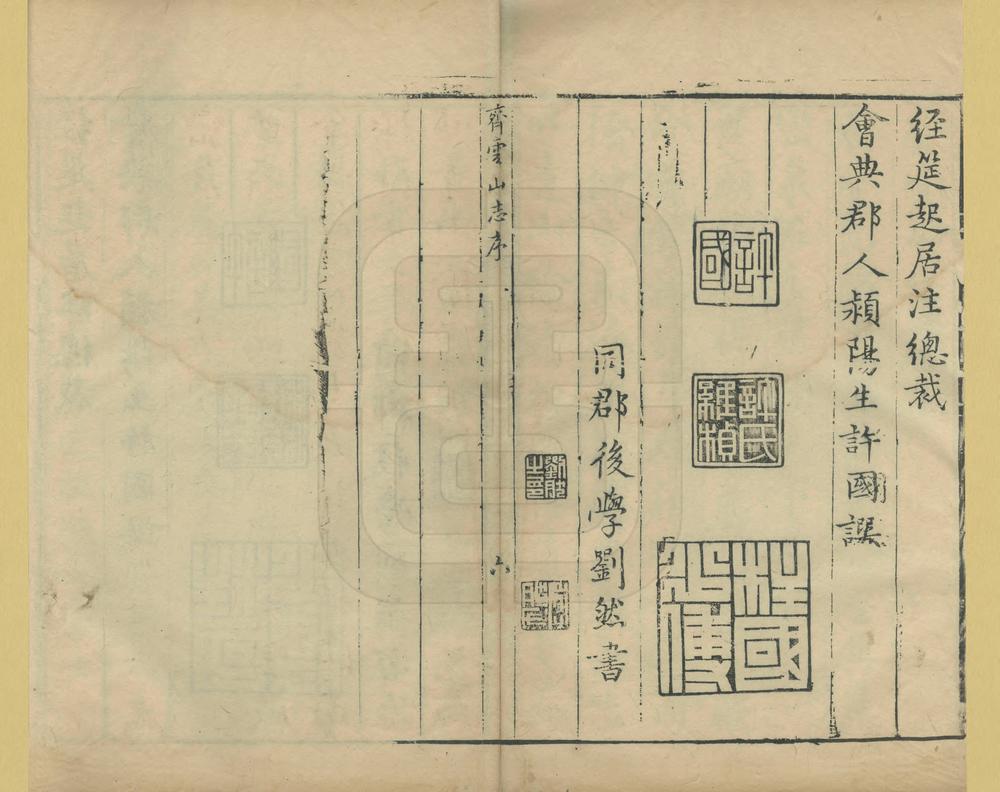 経筵起居注總裁
會典郡人潁陽生許國譔
許國
許氏維楨
柱國少傅
同郡後學劉然書
齊雲山志序
六